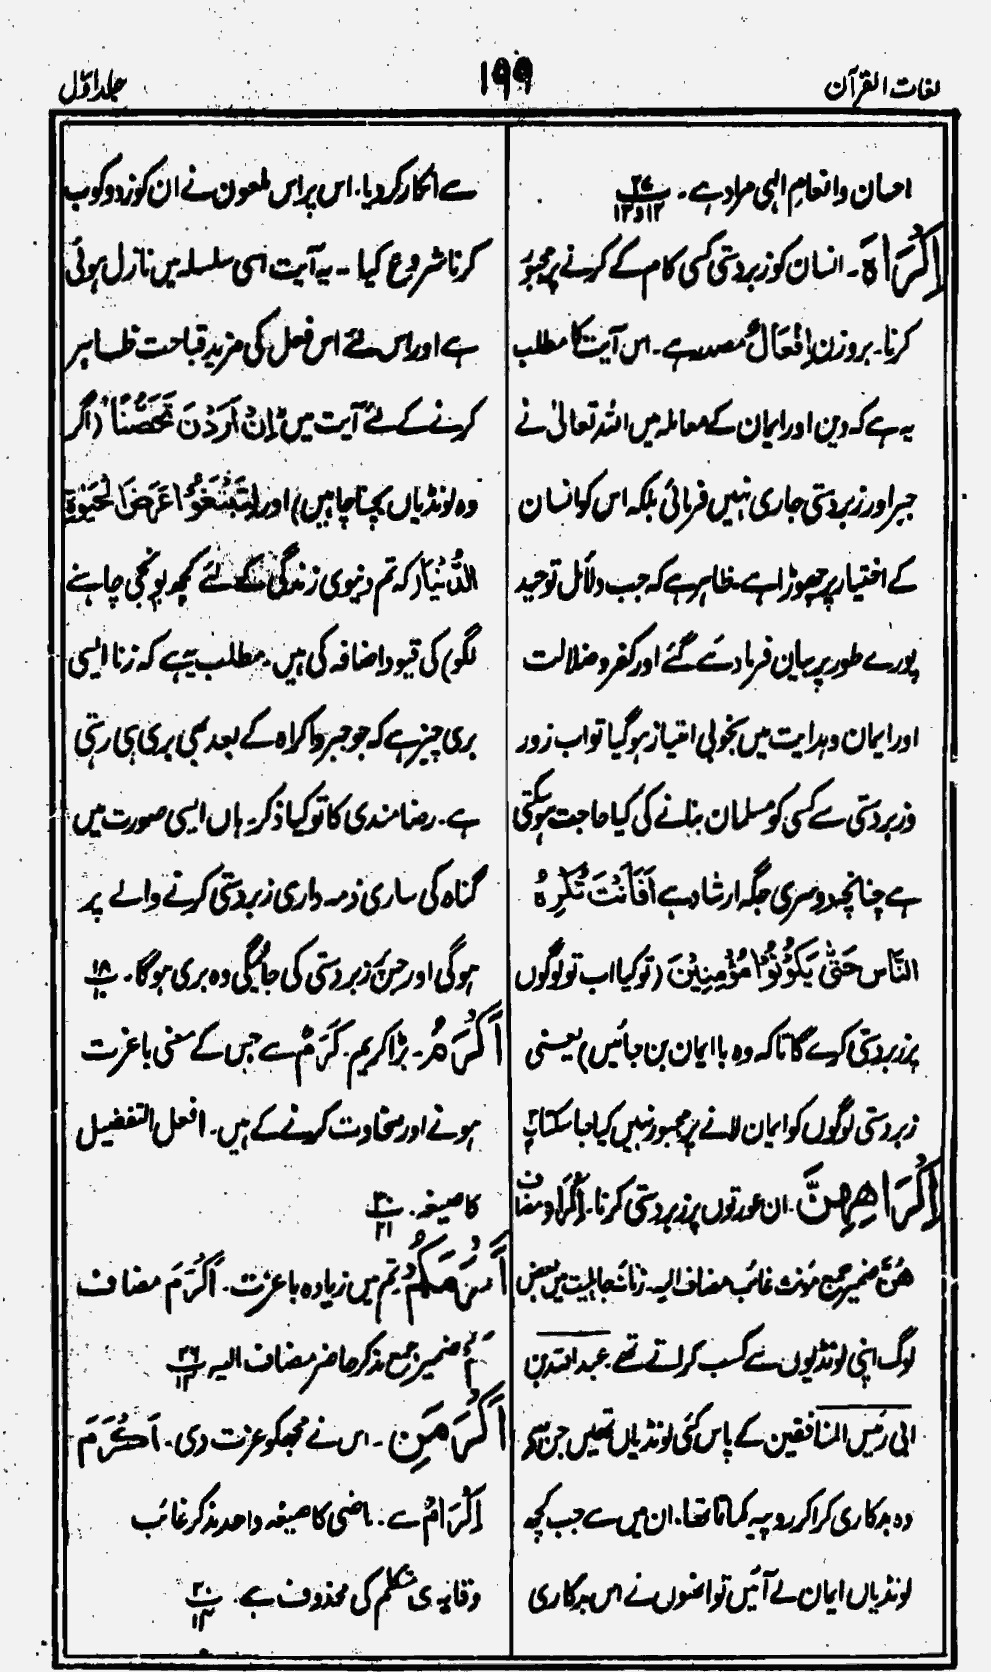 لغات القرآن
۱۹۹
جلد اوّل
احسان وانعامِ الٰہی مراد ہے۔ پ۲۷ ۱۲و۱۳
اِكْرَاهَ۔ انسان کو زبردستی کسی کام کے کرنے پر مجبور
کرنا۔ بروزن اِفْعَالٌ مصدر ہے۔ اس آیت کا مطلب
یہ ہے کہ دین اور ایمان کے معاملہ میں اللہ تعالیٰ نے
جبر اور زبردستی جاری نہیں فرمائی بلکہ اس کو انسان
کے اختیار پر چھوڑا ہے۔ ظاہر ہے کہ جب دلائل توحید
پورے طور پر بیان فرما دئے گئے اور کفر و ضلالت
اور ایمان وہدایت میں بخوبی امتیاز ہو گیا تو اب زور
وزبردستی سے کسی کو مسلمان بنانے کی کیا حاجت ہوسکتی
ہے چنانچہ دوسری جگہ ارشاد ہے اَفَاَنْتَ تُكْرِهُ
النَّاسَ حَتّٰى يَكُوْنُوْا مُؤْمِنِيْنَ (تو کیا اب تو لوگوں
پر زبردستی کرے گا تاکہ وہ با ایمان بن جائیں) یعنی
زبردستی لوگوں کو ایمان لانے پر مجبور نہیں کیا جا سکتا
اِكْرَاهِهِنَّ۔ ان عورتوں پر زبردستی کرنا۔ اِكْرَاهِ مضاف
هُنَّ ضمیر جمع مؤنث غائب مضاف الیہ۔ زمانۂ جاہلیت میں بعض
لوگ اپنی لونڈیوں سے کسب کراتے تھے۔ عبداللہ بن
ابی رئیس المنافقین کے پاس کئی لونڈیاں تھیں جن سے
وہ بدکاری کرا کر روپیہ کماتا تھا۔ ان میں سے جب کچھ
لونڈیاں ایمان لے آئیں تو انھوں نے اس بدکاری
سے انکار کر دیا۔ اس پر اس ملعون نے ان کو زدوکوب
کرنا شروع کیا۔ یہ آیت اسی سلسلہ میں نازل ہوئی
ہے اور اس لئے اس فعل کی مزید قباحت ظاہر
کرنے کے لئے آیت میں اِنْ اَرَدْنَ تَحَصُّنًا (اگر
وہ لونڈیاں بچنا چاہیں) اور لِتَبْتَغُوْا عَرَضَ الْحَيٰوةِ
الدُّنْيَا (کہ تم دنیوی زندگی کے لئے کچھ پونجی چاہنے
لگو) کی قیود اضافہ کی ہیں۔ مطلب یہ ہے کہ زنا ایسی
بری چیز ہے کہ جو جبر و اکراہ کے بعد بھی بری ہی رہتی
ہے۔ رضامندی کا تو کیا ذکر۔ ہاں ایسی صورت میں
گناہ کی ساری ذمہ داری زبردستی کرنے والے پر
ہوگی اور جس پر زبردستی کی جائیگی وہ بری ہوگا۔ پ۱۸ ۱۰
اَكْرَمُ۔ بڑا کریم۔ كَرَمٌ سے جس کے معنی باعزت
ہونے اور سخاوت کرنے کے ہیں۔ افعل التفضیل
کا صیغہ۔ پ۳۰ ۲۱
اَكْرَمَكُمْ۔ تم میں زیادہ باعزت۔ اَكْرَمَ مضاف
كُمْ ضمیر جمع مذکر حاضر مضاف الیہ پ۲۶ ۱۴
اَكْرَمَنِ۔ اس نے مجھکو عزت دی۔ اَكْرَمَ
اِكْرَامٌ سے۔ ماضی کا صیغہ واحد مذکر غائب
ن وقایہ ی متکلم کی محذوف ہے۔ پ۳۰ ۱۴